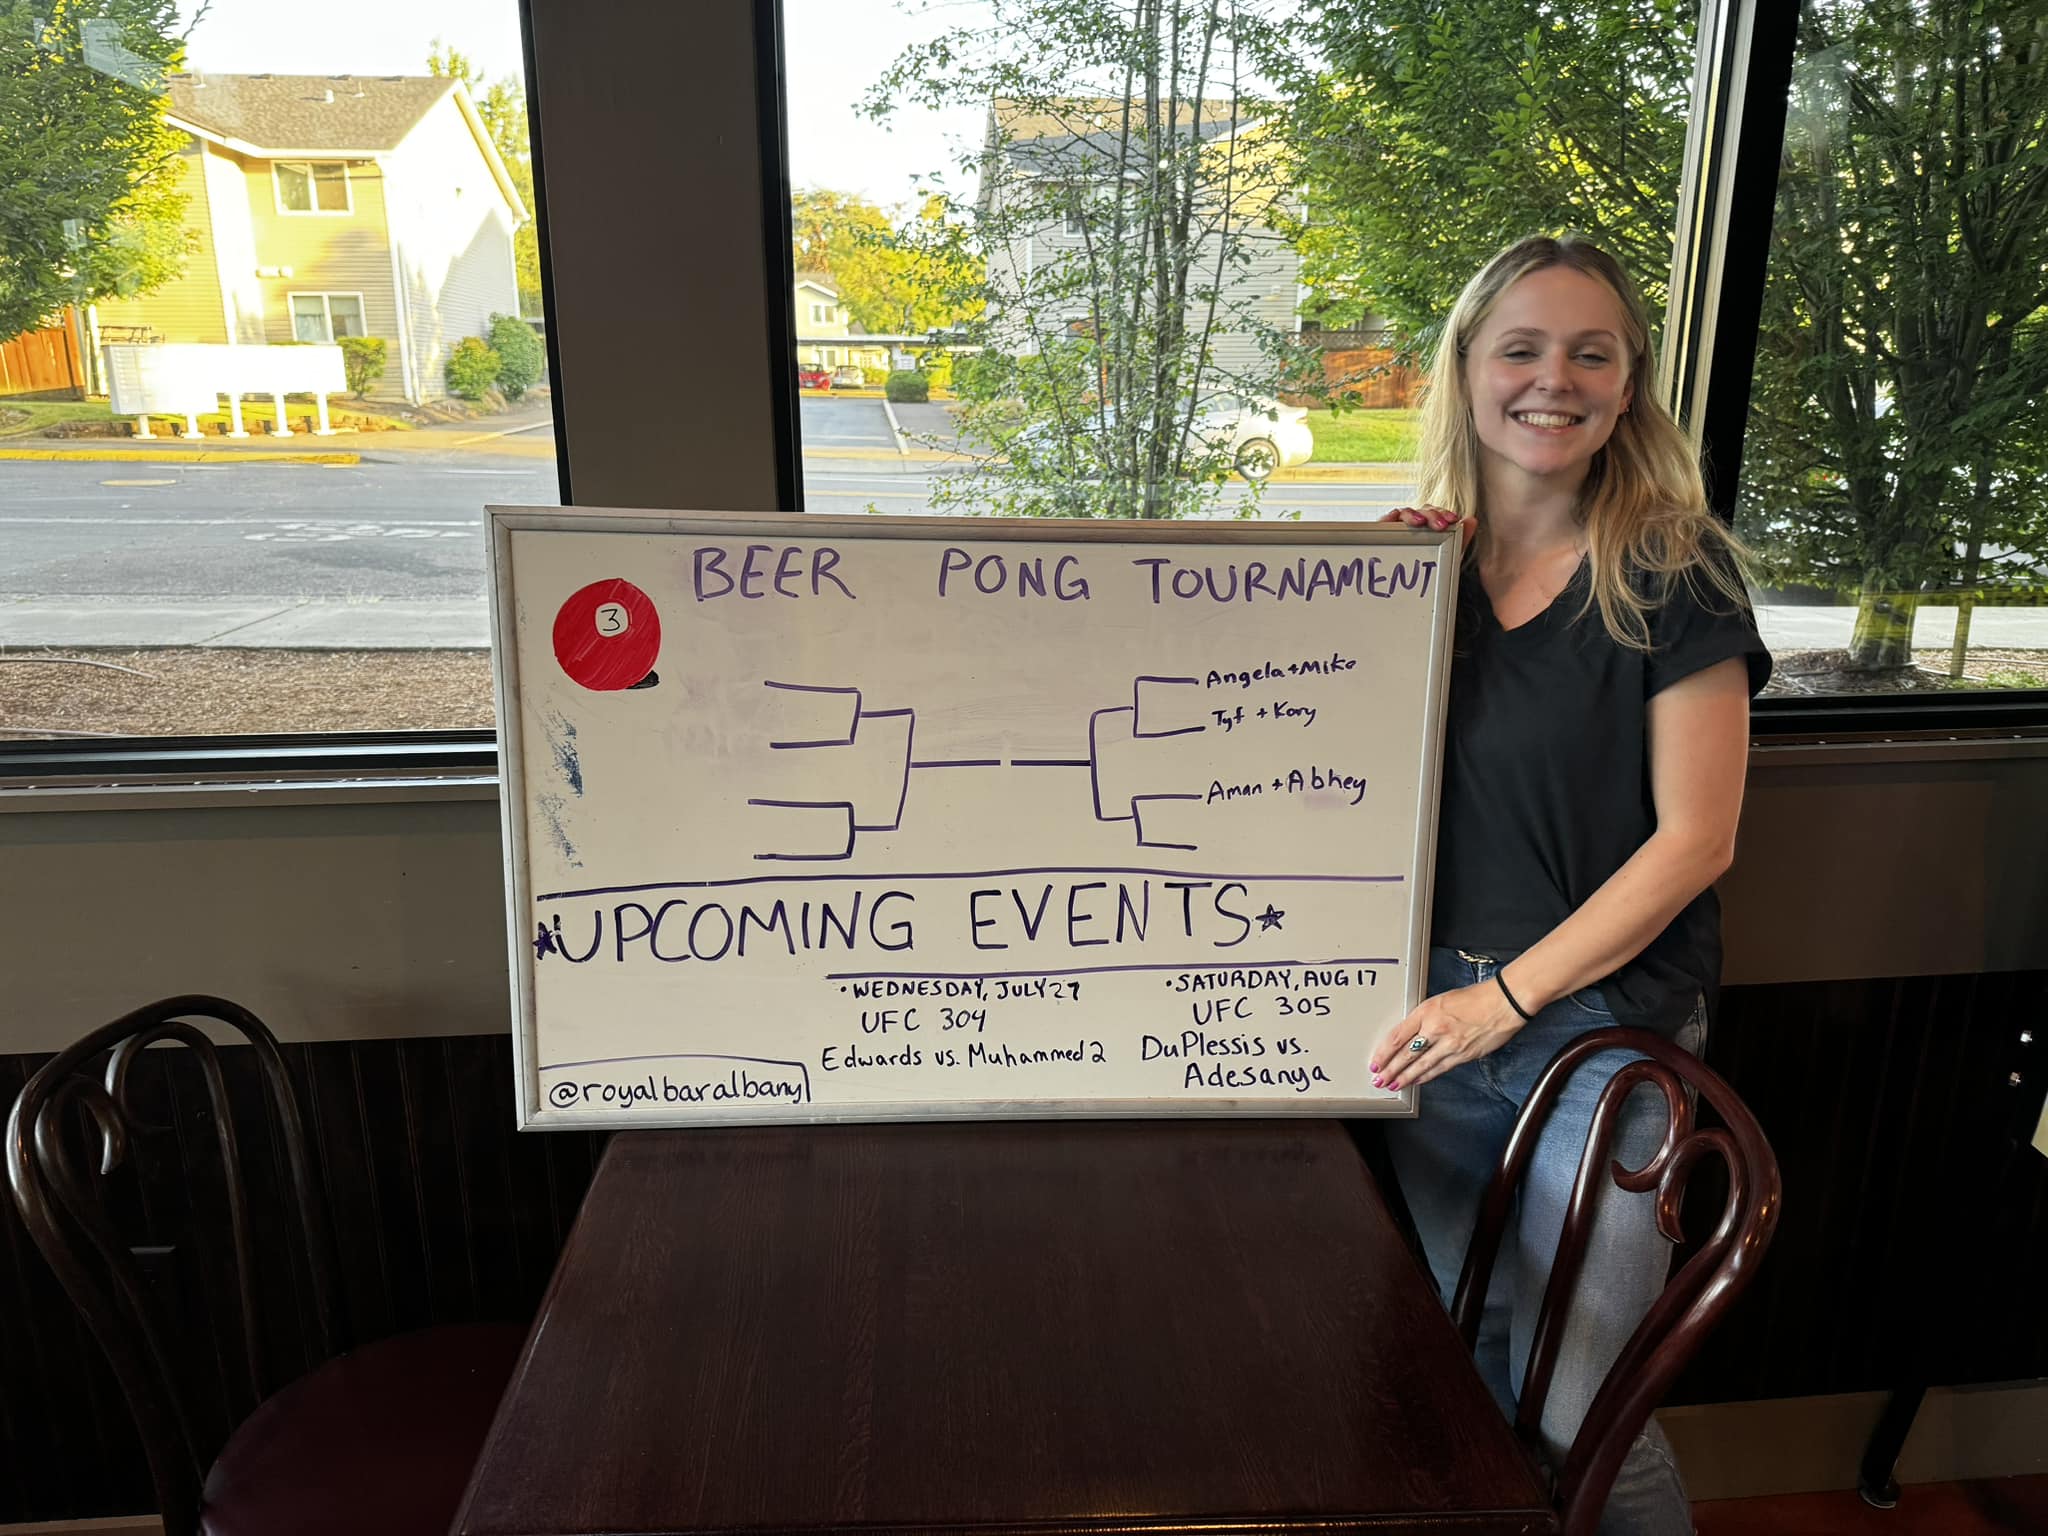 BEER PONG TOURNAMENT
3
Angela + Mike
Tyf + Kory
Aman + Abhey
★UPCOMING EVENTS★
• WEDNESDAY, JULY 27
UFC 304
Edwards vs. Muhammed 2
• SATURDAY, AUG 17
UFC 305
DuPlessis vs.
Adesanya
@royalbaralbany